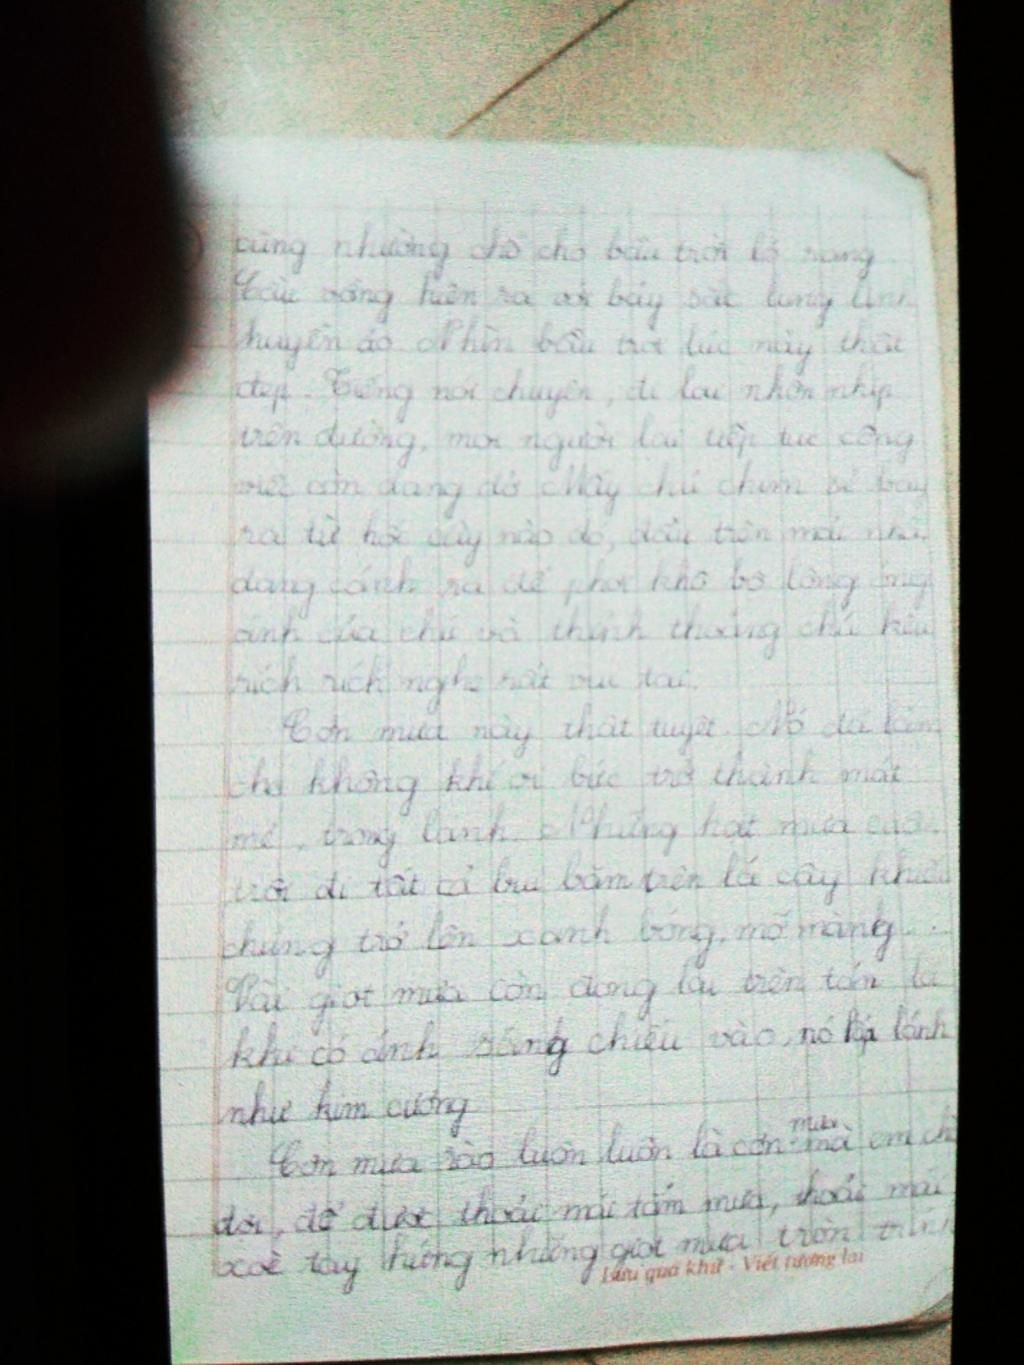 cũng nhường chỗ cho bầu trời ló rạng.
Cầu vồng hiện ra với bảy sắc lung linh
huyền ảo. Nhìn bầu trời lúc này thật
đẹp. Tiếng nói chuyện, đi lại nhộn nhịp
trên đường, mọi người lại tiếp tục công
việc còn dang dở. Mấy chú chim sẻ bay
ra từ hốc cây nào đó, đậu trên mái nhà
dang cánh ra để phơi khô bộ lông óng
ánh của chú và thỉnh thoảng chú kêu
rích rích nghe rất vui tai.
Cơn mưa này thật tuyệt. Nó đã làm
cho không khí oi bức trở thành mát
mẻ, trong lành. Những hạt mưa cuốn
trôi đi tất cả bụi bặm trên lá cây khiến
chúng trở lên xanh bóng, mỡ màng.
Vài giọt mưa còn đọng lại trên tán lá
khi có ánh sáng chiếu vào, nó lấp lánh
như kim cương
Cơn mưa rào luôn luôn là cơn mưa mà em chờ
đợi, để được thoải mái tắm mưa, thoải mái
xoè tay hứng những giọt mưa tròn trĩnh
Lưu quá khứ - Viết tương lai